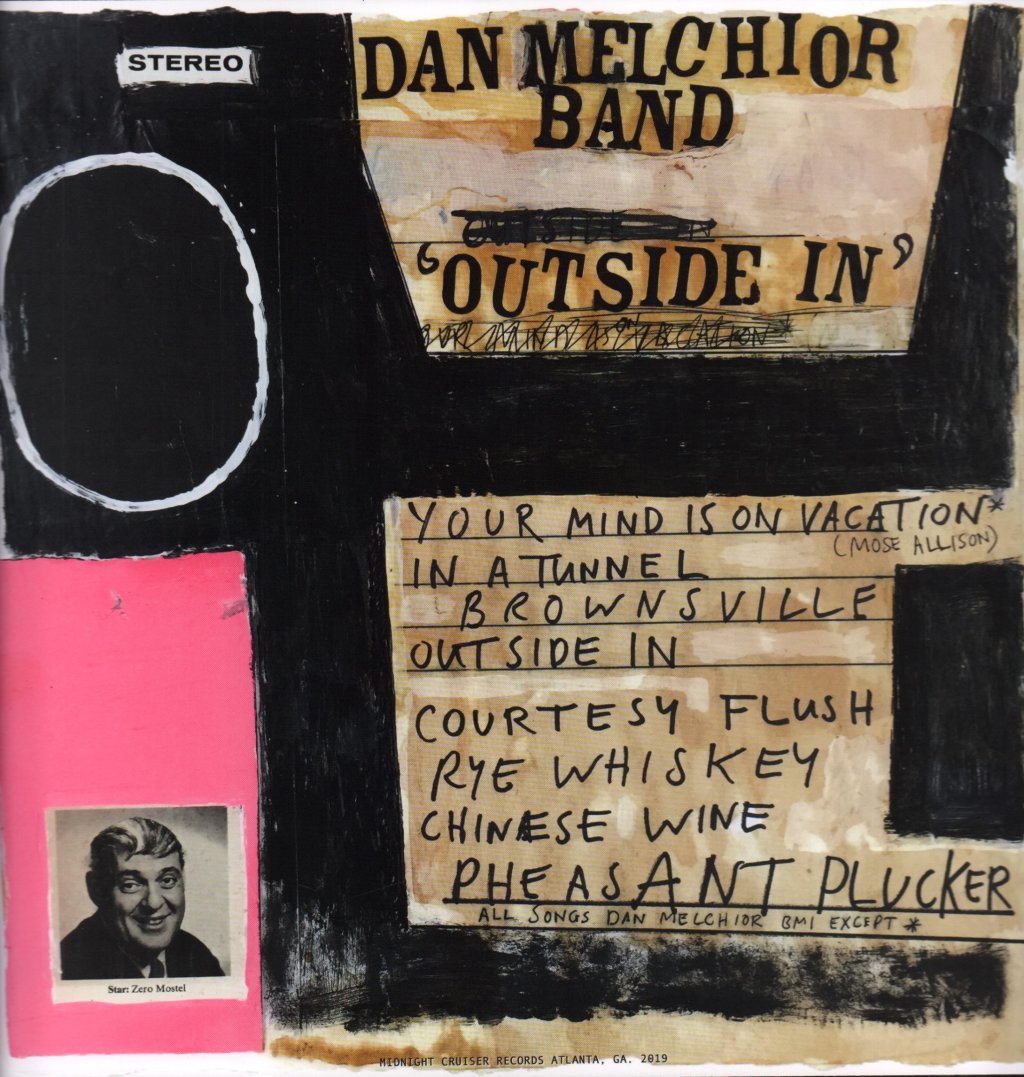 STEREO
DAN MELCHIOR
BAND
OUTSIDE IN
'OUTSIDE IN'
YOUR MIND IS ON VACATION*
(MOSE ALLISON)
IN A TUNNEL
BROWNSVILLE
OUTSIDE IN
COURTESY FLUSH
RYE WHISKEY
CHINESE WINE
PHEASANT PLUCKER
ALL SONGS DAN MELCHIOR BMI EXCEPT *
Star: Zero Mostel
MIDNIGHT CRUISER RECORDS ATLANTA, GA. 2019